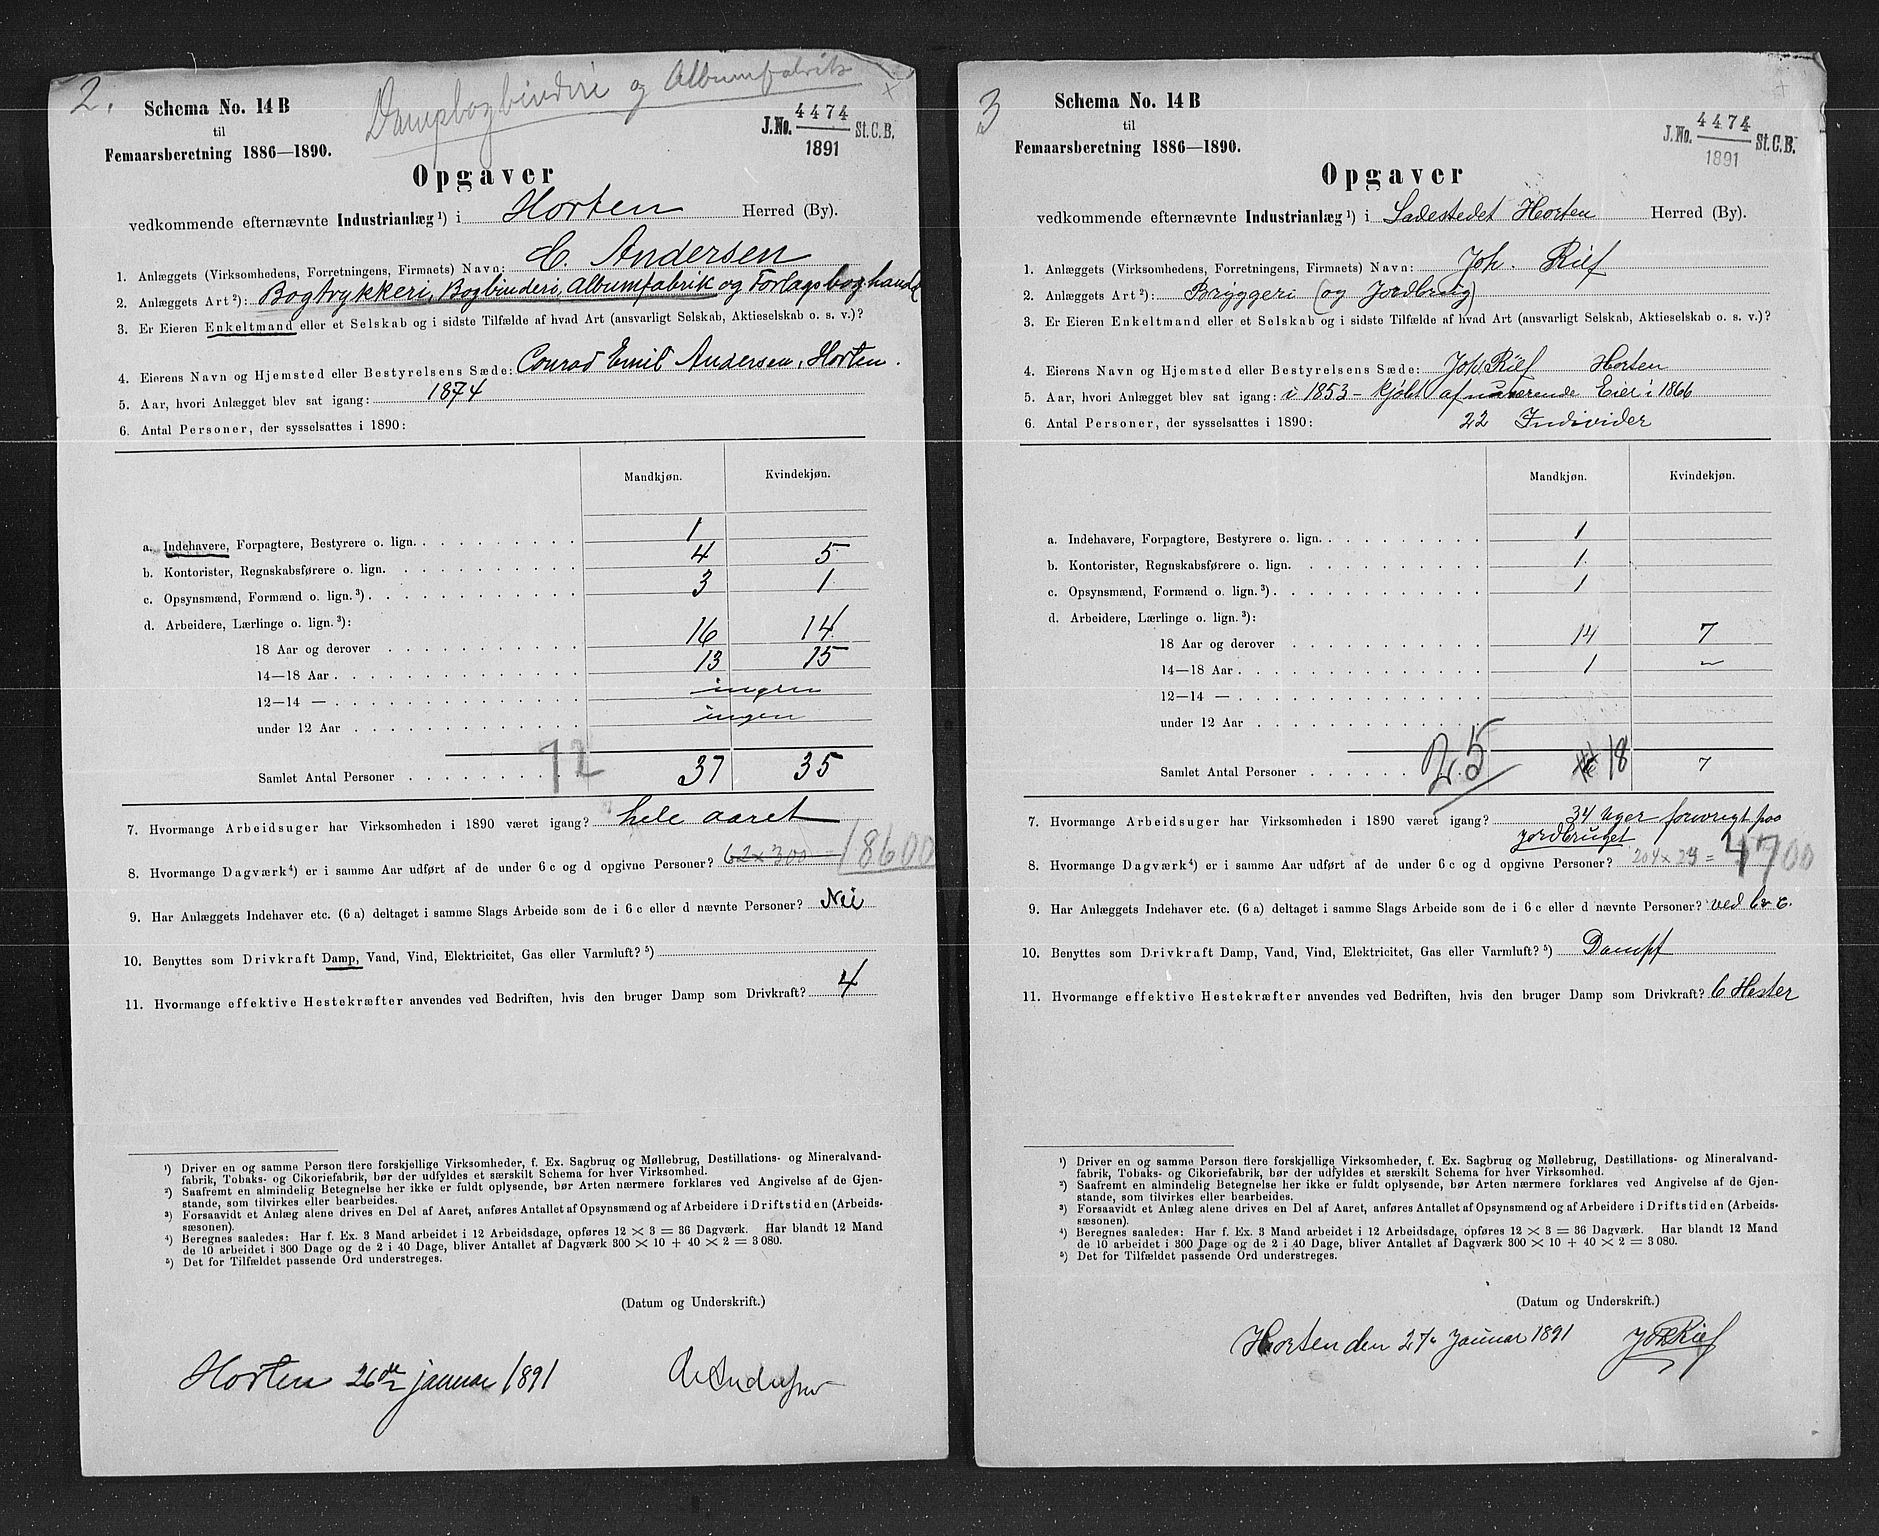 2.
Dampbogbinderi og Albumfabrik
Schema No. 14 B
til
Femaarsberetning 1886—1890.
J.No. 4474 St.C.B.
1891
Opgaver
vedkommende efternævnte Industrianlæg ¹) i Horten Herred (By).
1. Anlæggets (Virksomhedens, Forretningens, Firmaets) Navn: C. Andersen
2. Anlæggets Art ²): Bogtrykkeri, Bogbinderi, Albumfabrik og Forlagsboghandel
3. Er Eieren Enkeltmand eller et Selskab og i sidste Tilfælde af hvad Art (ansvarligt Selskab, Aktieselskab o. s. v.)?
4. Eierens Navn og Hjemsted eller Bestyrelsens Sæde: Conrad Emil Andersen, Horten.
5. Aar, hvori Anlægget blev sat igang: 1874
6. Antal Personer, der sysselsattes i 1890:
Mandkjøn. Kvindekjøn.
a. Indehavere, Forpagtere, Bestyrere o. lign. 1
b. Kontorister, Regnskabsførere o. lign. 4 5
c. Opsynsmænd, Formænd o. lign. ³) 3 1
d. Arbeidere, Lærlinge o. lign. ³):
18 Aar og derover 16 14
14—18 Aar 13 15
12—14 — ingen
under 12 Aar ingen
Samlet Antal Personer 72 37 35
7. Hvormange Arbeidsuger har Virksomheden i 1890 været igang? hele aaret
8. Hvormange Dagværk ⁴) er i samme Aar udført af de under 6 c og d opgivne Personer? 62 x 300 18600
9. Har Anlæggets Indehaver etc. (6 a) deltaget i samme Slags Arbeide som de i 6 c eller d nævnte Personer? Nei
10. Benyttes som Drivkraft Damp, Vand, Vind, Elektricitet, Gas eller Varmluft? ⁵)
11. Hvormange effektive Hestekræfter anvendes ved Bedriften, hvis den bruger Damp som Drivkraft? 4
¹) Driver en og samme Person flere forskjellige Virksomheder, f. Ex. Sagbrug og Møllebrug, Destillations- og Mineralvand-
fabrik, Tobaks- og Cikoriefabrik, bør der udfyldes et særskilt Schema for hver Virksomhed.
²) Saafremt en almindelig Betegnelse her ikke er fuldt oplysende, bør Arten nærmere forklares ved Angivelse af de Gjen-
stande, som tilvirkes eller bearbeides.
³) Forsaavidt et Anlæg alene drives en Del af Aaret, anføres Antallet af Opsynsmænd og af Arbeidere i Driftstiden (Arbeids-
sæsonen).
⁴) Beregnes saaledes: Har f. Ex. 3 Mand arbeidet i 12 Arbeidsdage, opføres 12 × 3 = 36 Dagværk. Har blandt 12 Mand
de 10 arbeidet i 300 Dage og de 2 i 40 Dage, bliver Antallet af Dagværk 300 × 10 + 40 × 2 = 3 080.
⁵) Det for Tilfældet passende Ord understreges.
(Datum og Underskrift.)
Horten 26de januar 1891 C Andersen
3
Schema No. 14 B
til
Femaarsberetning 1886—1890.
J.No. 4474 St.C.B.
1891
Opgaver
vedkommende efternævnte Industrianlæg ¹) i Ladestedet Horten Herred (By).
1. Anlæggets (Virksomhedens, Forretningens, Firmaets) Navn: Joh. Rief
2. Anlæggets Art ²): Bryggeri (og Jordbrug)
3. Er Eieren Enkeltmand eller et Selskab og i sidste Tilfælde af hvad Art (ansvarligt Selskab, Aktieselskab o. s. v.)?
4. Eierens Navn og Hjemsted eller Bestyrelsens Sæde: Joh. Rief Horten
5. Aar, hvori Anlægget blev sat igang: i 1853 - kjøbt af nuværende Eier i 1866
6. Antal Personer, der sysselsattes i 1890: 22 Individer
Mandkjøn. Kvindekjøn.
a. Indehavere, Forpagtere, Bestyrere o. lign. 1
b. Kontorister, Regnskabsførere o. lign. 1
c. Opsynsmænd, Formænd o. lign. ³) 1
d. Arbeidere, Lærlinge o. lign. ³):
18 Aar og derover 14 7
14—18 Aar 1 "
12—14 —
under 12 Aar
Samlet Antal Personer 25 18 7
7. Hvormange Arbeidsuger har Virksomheden i 1890 været igang? 34 Uger forøvrigt paa
Jordbruget
8. Hvormange Dagværk ⁴) er i samme Aar udført af de under 6 c og d opgivne Personer? 204 x 23 = 4700
9. Har Anlæggets Indehaver etc. (6 a) deltaget i samme Slags Arbeide som de i 6 c eller d nævnte Personer? ved b & c.
10. Benyttes som Drivkraft Damp, Vand, Vind, Elektricitet, Gas eller Varmluft? ⁵) Dampf
11. Hvormange effektive Hestekræfter anvendes ved Bedriften, hvis den bruger Damp som Drivkraft? 6 Hester
¹) Driver en og samme Person flere forskjellige Virksomheder, f. Ex. Sagbrug og Møllebrug, Destillations- og Mineralvand-
fabrik, Tobaks- og Cikoriefabrik, bør der udfyldes et særskilt Schema for hver Virksomhed.
²) Saafremt en almindelig Betegnelse her ikke er fuldt oplysende, bør Arten nærmere forklares ved Angivelse af de Gjen-
stande, som tilvirkes eller bearbeides.
³) Forsaavidt et Anlæg alene drives en Del af Aaret, anføres Antallet af Opsynsmænd og af Arbeidere i Driftstiden (Arbeids-
sæsonen).
⁴) Beregnes saaledes: Har f. Ex. 3 Mand arbeidet i 12 Arbeidsdage, opføres 12 × 3 = 36 Dagværk. Har blandt 12 Mand
de 10 arbeidet i 300 Dage og de 2 i 40 Dage, bliver Antallet af Dagværk 300 × 10 + 40 × 2 = 3 080.
⁵) Det for Tilfældet passende Ord understreges.
(Datum og Underskrift.)
Horten den 27 Januar 1891 Joh Rief